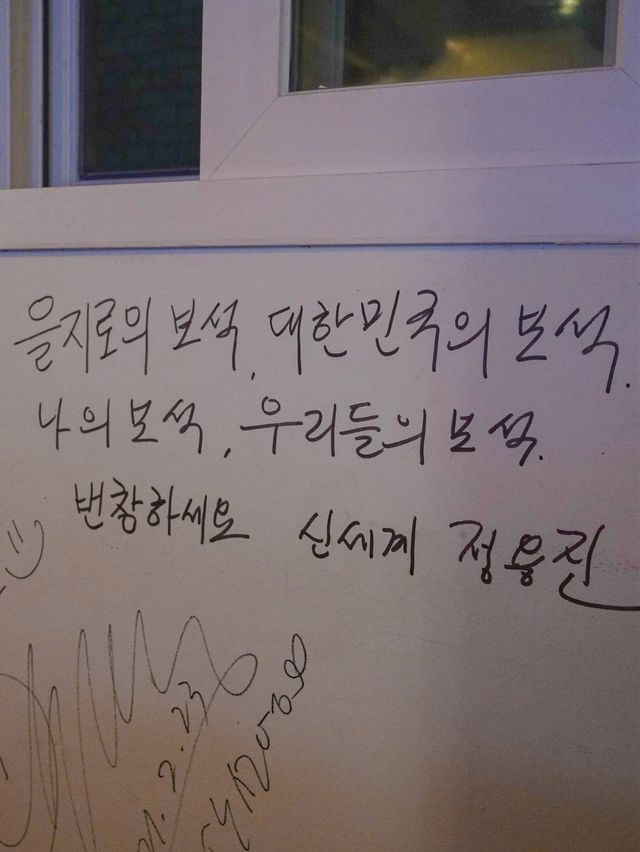 을지로의 보석, 대한민국의 보석.
나의 보석, 우리들의 보석.
번창하세요 신세계 정용진
21. 2. 23